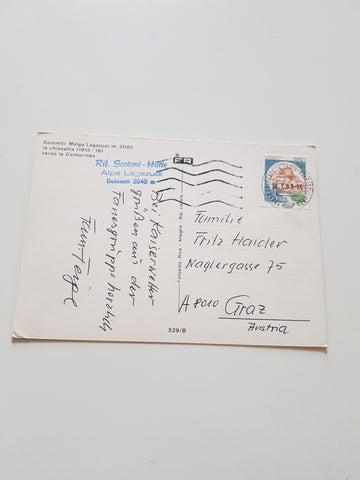 Dolomiti: Malga Lagazuoi m. 2040
la chiesetta (1915-18)
verso le Conturines
Rif. Scotoni-Hütte
Alpe Lagazuoi
Dolomiti 2040 m
FR
Bei Kaiserwetter
grüßen aus der
Fanesgruppe herzlich
Fotoediz Riva - Alleghe
529/B
Familie
Fritz Haider
Naglergasse 75
A 8010 Graz
Austria